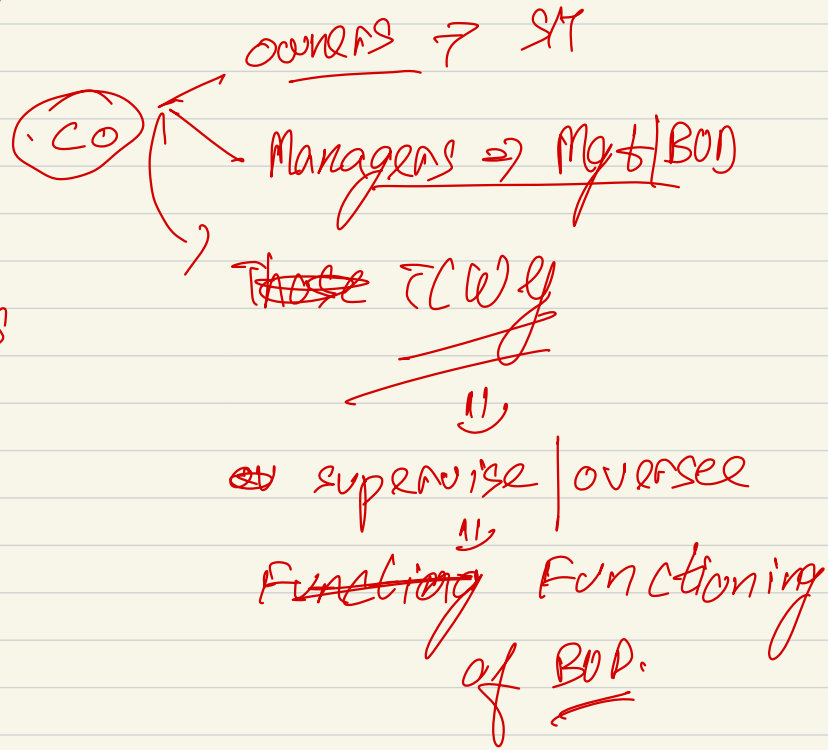 owners → SH
CO
Managers ⇒ Mgt|BOD
Those TCWG
supervise | oversee
Functiong Functioning
of BOD.